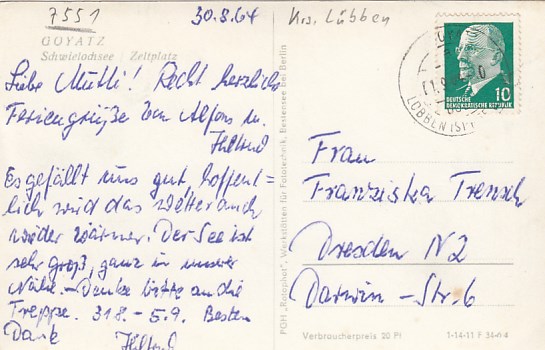 7551
30.8.64
GOYATZ
Schwielochsee / Zeltplatz
Liebe Mutti! Recht herzliche
Feriengrüße von Alfons u.
Hiltrud
Es gefällt uns gut, hoffent=
lich wird das Wetter auch
wieder wärmer. Der See ist
sehr groß, ganz in unserer
Nähe. – Denke bitte an die
Treppe. 31.8. – 5.9. Besten
Dank Hiltrud
PGH „Rotophot“, Werkstätten für Fototechnik, Bestensee Bez. Berlin
Krs. Lübben
10
DEUTSCHE
DEMOKRATISCHE REPUBLIK
LÜBBEN (SPR
Frau
Franziska Trensch
Dresden N 2
Darwin – Str. 6
Verbraucherpreis 20 Pf
1-14-11 F 34-64